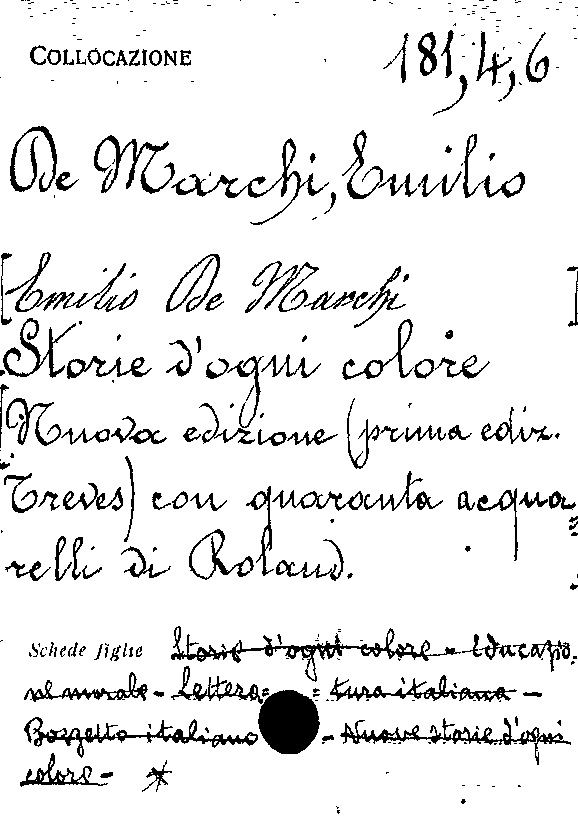 COLLOCAZIONE 181,4,6
De Marchi, Emilio
[Emilio De Marchi]
Storie d'ogni colore
[Nuova edizione (prima ediz.
Treves) con quaranta acqua=
relli di Roland.
Schede figlie Storie d'ogni colore - Educazio=
ne morale - Lettera= = tura italiana -
Bozzetto italiano - Nuove storie d'ogni
colore - *